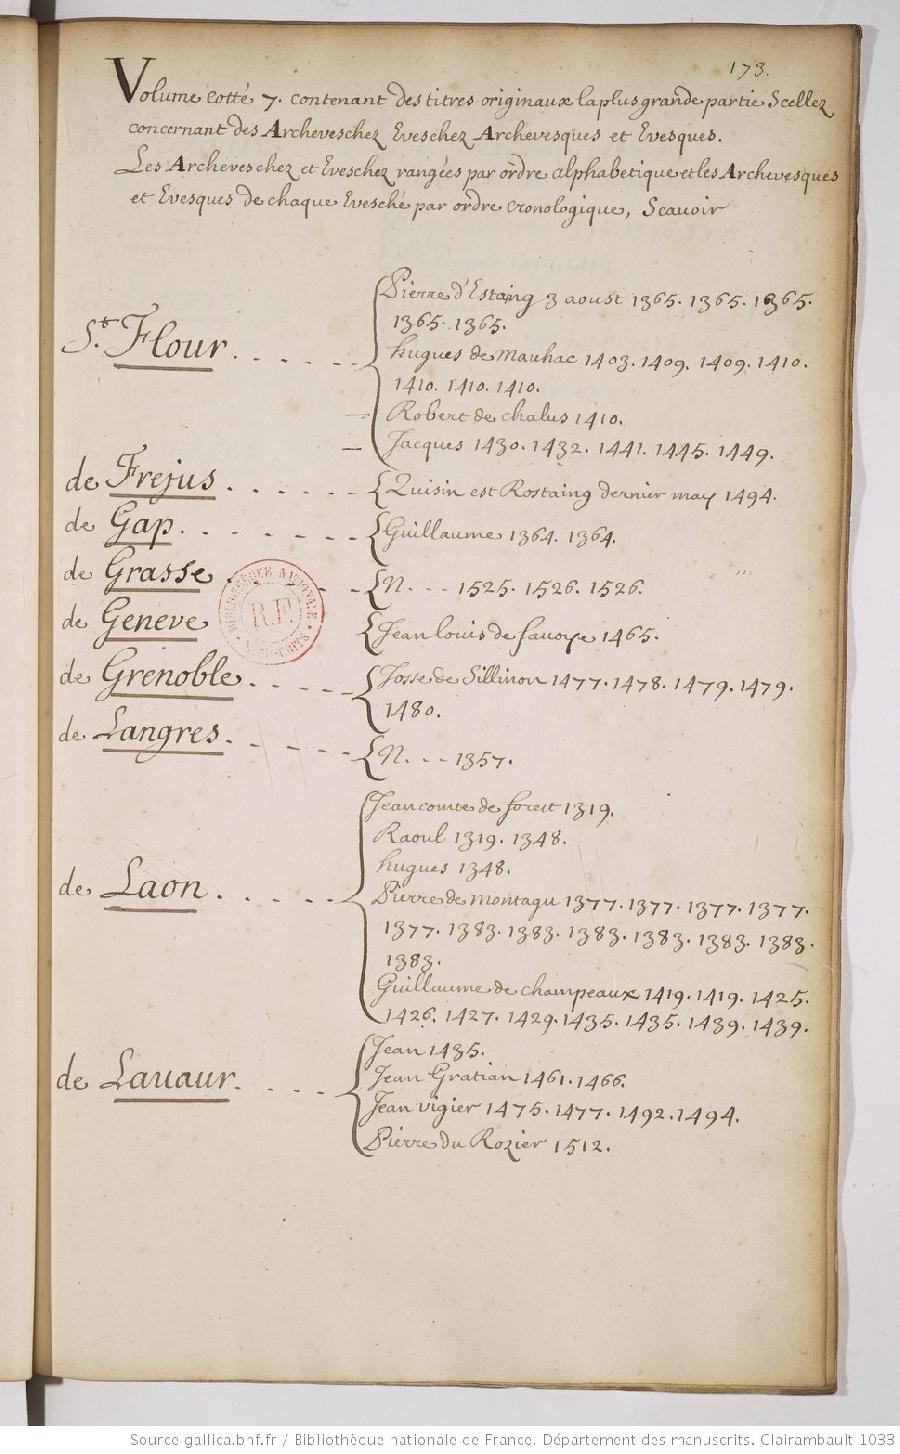 173.
Volume cotté 7. contenant des titres originaux la plus grande partie Scellez
concernant des Archeveschez Eveschez Archevesques et Evesques.
Les Archeveschez et Eveschez rangées par ordre alphabetique et les Archevesques
et Evesques de chaque Evesché par ordre cronologique, Scauoir
St. Flour
Pierre d'Estaing 3 aoust 1365. 1365. 1365.
1365. 1365.
hugues de Mauhac 1403. 1409. 1409. 1410.
1410. 1410. 1410.
Robert de chalus 1410.
Jacques 1430. 1432. 1441. 1445. 1449.
de Frejus
est Rostaing dernier may 1494.
de Gap
Guillaume 1364. 1364.
de Grasse
N. 1525. 1526. 1526.
de Geneve
Jean louis de sauoye 1465.
de Grenoble
Josse de Sillinon 1477. 1478. 1479. 1479.
1480.
de Langres
N. 1357.
de Laon
Jean comte de forest 1319.
Raoul 1319. 1348.
hugues 1348.
Pierre de montagu 1377. 1377. 1377. 1377.
1377. 1383. 1383. 1383. 1383. 1383. 1383.
1383.
Guillaume de champeaux 1419. 1419. 1425.
1426. 1427. 1429. 1435. 1435. 1439. 1439.
de Lauaur
Jean 1435.
Jean Gratian 1461. 1466.
Jean vigier 1475. 1477. 1492. 1494.
Pierre du Rozier 1512.
BIBLIOTHEQUE NATIONALE
R.F.
MANUSCRITS
Source gallica.bnf.fr / Bibliothèque nationale de France. Département des manuscrits. Clairambault 1033